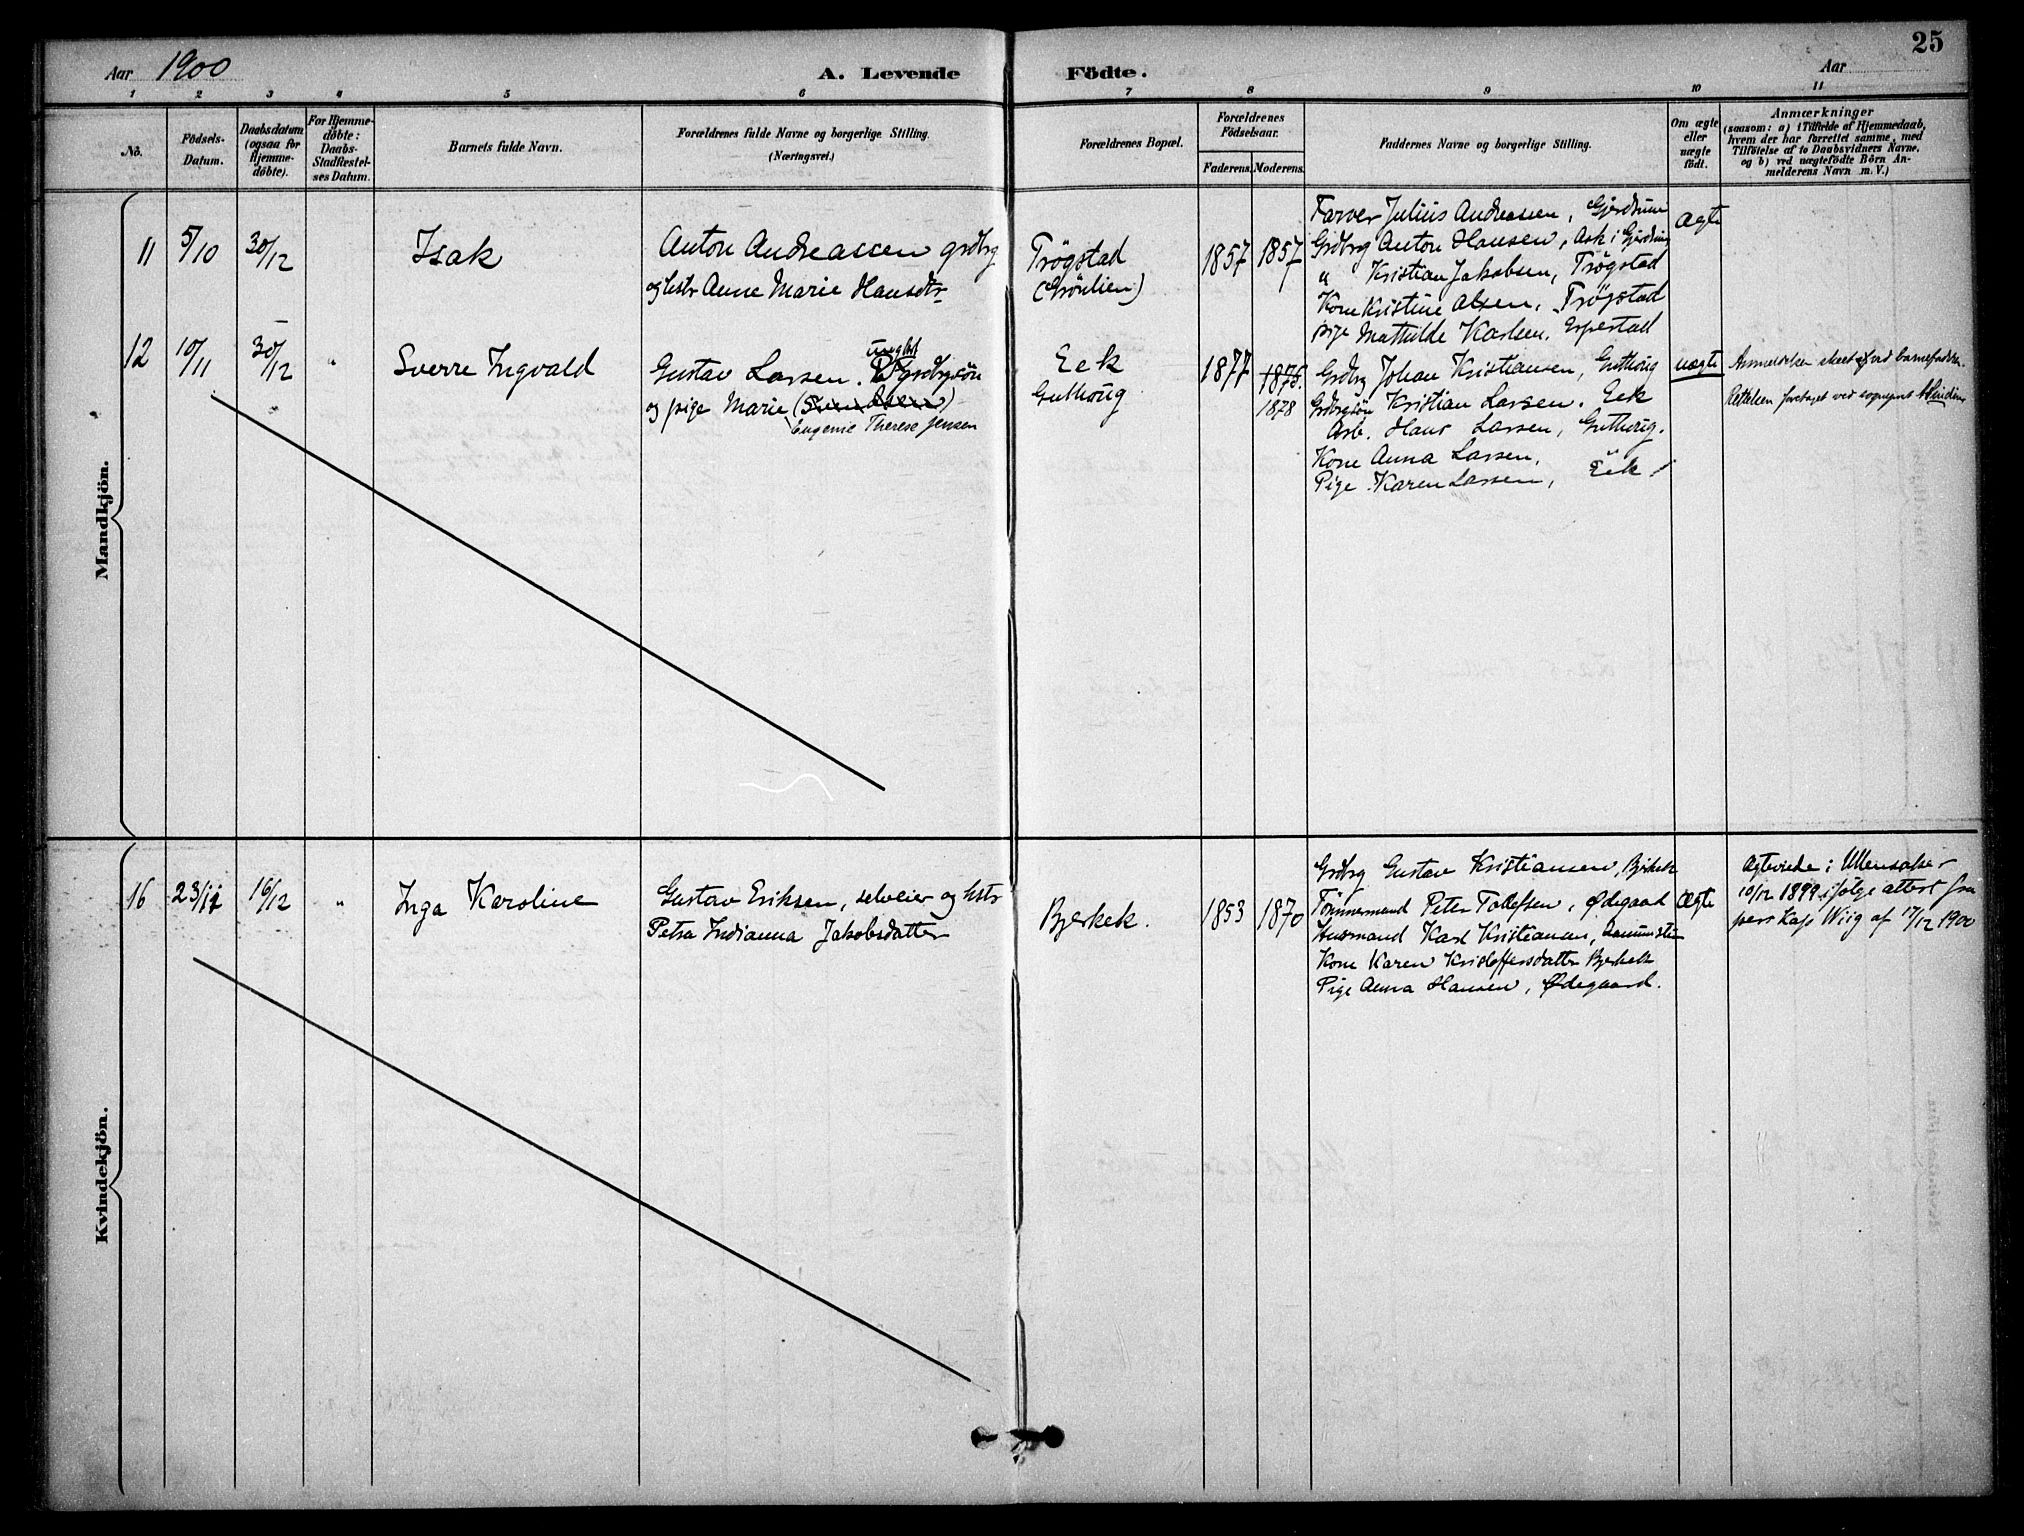 25
Aar 1900 A. Levende Födte. Aar
1 2 3 4 5 6 7 8 9 10 11
No.
Födsels-
Datum.
Daabsdatum
(ogsaa for
Hjemme-
døbte).
For Hjemme-
døbte:
Daabs-
Stadfæstel-
ses Datum.
Barnets fulde Navn.
Forældrenes fulde Navne og borgerlige Stilling.
(Næringsvei.)
Forældrenes Bopæl.
Forældrenes
Fødselsaar.
Faderens. Moderens.
Faddernes Navne og borgerlige Stilling.
Om ægte
eller
uægte
födt.
Anmærkninger
(saasom: a) i Tilfælde af Hjemmedaab,
hvem der har forrettet samme, med
Tilføielse af to Daabsvidners Navne,
og b) ved uægtefödte Börn An-
melderens Navn m. V.)
Mandkjön.
11 5/10 30/12 Isak
Anton Andreassen grdbrg
og hstr Anne Marie Hansdtr
Trøgstad
(Grönlien)
1857 1857
Farver Julius Andreassen, Gjerdrum
Grdbrg Anton Hansen, Ask i Gjerdrum
" Kristian Jakobsen, Trøgstad
Kone Kristine Olsen, Trøgstad
pige Mathilde Karlsen, Erpestad
ægte
12 10/11 30/12 " Sverre Ingvald
ungkl
Gustav Larsen. grdbrgsön
og pige Marie
Eugenie Therese Jensen
Eek
Gulhoug
1877 1875.
1878
Grdbrg Johan Kristiansen, Gulhoug
Grdbrgsön Kristian Larsen. Eek
Arb. Hans Larsen, Gulhoug.
Kone Anna Larsen, "
Pige Karen Larsen, Eek
uægte
Anmeldelse skeet ved barnefaderen.
Rettelsen foretaget ved sogneprest
Kvindekjön.
16 23/11 16/12 " Inga Karoline
Gustav Eriksen, selveier og hstr
Petra Indianna Jakobsdatter
Bjerkek.
1853 1870
Grdbrg Gustav Kristiansen, Bjerkek
Tömmermand Peter Tollefsen, Ødegaard
Husmand Karl Kristiansen,
Kone Karen Kristoffersdatter Bjerkek
Pige Anna Hansen, Ødegaard.
Ægte
Ægteviede i Ullensaker
10/12 1899 ifølge attest fra
pers. kap. Wiig af 17/12 1900